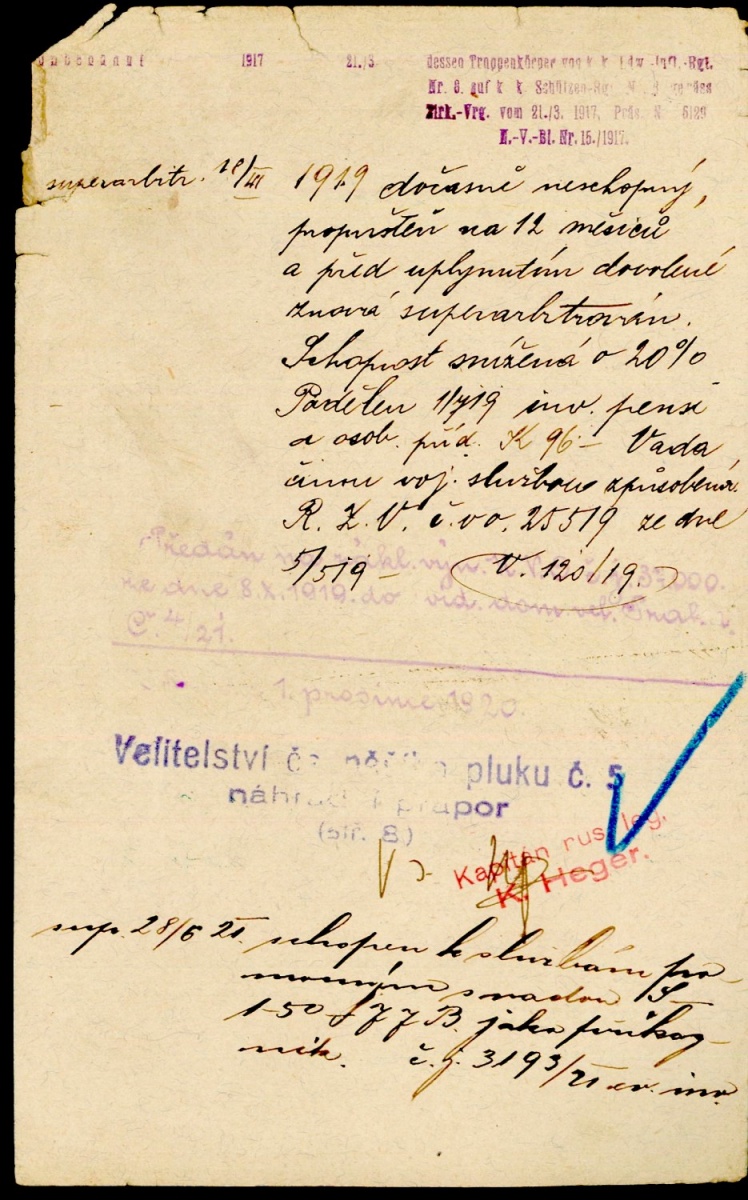 1917 21./3. dessen Truppenkörper von k. k. Ldw.-Inft.-Rgt.
Nr. 8. auf k. k. Schützen-Rgt. N. 8
Zirk.-Vrg. vom 21./3. 1917, Präs. N 5129
K.-V.-Bl. Nr. 15./1917.
superarbitr. 1919 dočasně neschopný,
propuštěn na 12 měsíců
a před uplynutím dovolené
znova superarbitrován.
Schopnost snížená o 20%
Podělen 1/7 19 inv. pensí
a osob. příd. K 96 – Vada
činnou voj. službou způsobená.
R. Z. V. č. 25519 ze dne
5/5 19 – V. 120/19.
Předán na zákl. výn.
ze dne 8.X.1919. do vel.
Č. 4/21.
1. prosince 1920.
Velitelství pluku č. 5
náhradní prapor
(stř. 8)
Kapitán rus. leg.
K. Heger.
sup. 28/6 21. schopen k službám po-
mocným s vadou
1-50 jako
č. j. 3193/21 ev. inv.